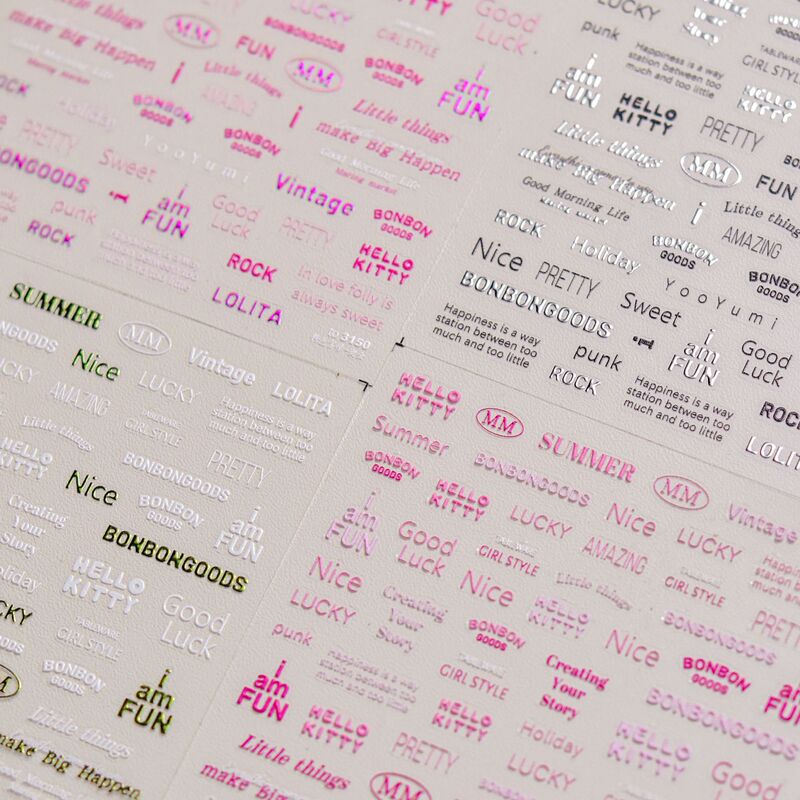 LUCKY
Good
Luck
FUN
BONBONGOODS
GIRL STYLE
make Big Happen
MM
FUN
i
Little things
MM
BONBON
GOODS
i
am
FUN
ROCK
Holiday
BONBON
GOODS
AMAZING
i
Little things
make Big Happen
PRETTY
YooYumi
BONBON
GOODS
Good Morning Life
BONBONGOODS
Sweet
i
am
FUN
Good
Luck
Vintage
PRETTY
BONBON
GOODS
punk
ROCK
ROCK
HELLO
KITTY
LOLITA
In love folly is
always sweet
to 3150
LUCKY
Your
Story
punk
Happiness is a way
station between too
much and too little
TABLEWARE
GIRL STYLE
i
am
FUN
HELLO
KITTY
PRETTY
HELLO
KITTY
Little things
make Big Happen
MM
FUN
Good Morning Life
i
Little things
AMAZING
ROCK
Holiday
BONBON
GOODS
BONBON
GOODS
Nice
PRETTY
YooYumi
BONBONGOODS
Sweet
Happiness is a way
station between too
much and too little
punk
i
am
FUN
Good
Luck
ROCK
Happiness is a way
station between too
much and too little
ROCK
LOLITA
SUMMER
MM
BONBONGOODS
Nice
Vintage
LUCKY
LOLITA
AMAZING
GIRL STYLE
Happiness is a way
station between too
much and too little
Little things
BONBONGOODS
PRETTY
HELLO
KITTY
Nice
BONBON
GOODS
i
am
FUN
Creating
Your
Story
BONBONGOODS
Holiday
HELLO
KITTY
Good
Luck
LUCKY
TABLEWARE
GIRL STYLE
BONBON
GOODS
i
am
FUN
Little things
make Big Happen
HELLO
KITTY
MM
SUMMER
MM
Vintage
Summer
BONBONGOODS
BONBON
GOODS
HELLO
KITTY
LUCKY
Nice
LUCKY
i
am
FUN
Good
Luck
GIRL STYLE
AMAZING
Happiness is a way
station between too
much and too little
Nice
Nice
Little things
GIRL STYLE
PRETTY
LUCKY
Creating
Your
Story
HELLO
KITTY
BONBONGOODS
punk
BONBON
GOODS
Nice
Happiness is a way
station between too
much and too little
GIRL STYLE
Creating
Your
Story
BONBON
GOODS
i
am
FUN
i
am
FUN
HELLO
KITTY
HELLO
KITTY
Holiday
BONBONGOODS
Little things
make Big Happen
PRETTY
LUCKY
HELLO
KITTY
MM
Good
Luck